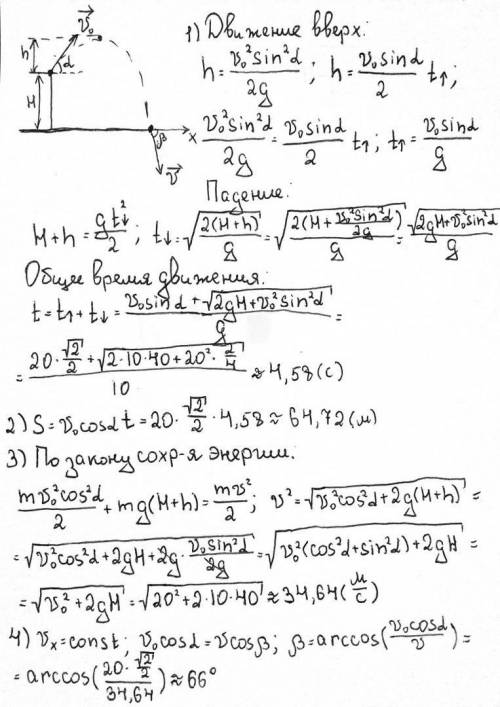 v⃗₀
h
α
H
β
x
v⃗
1) Движение вверх:
h = v₀²sin²α/2g ; h = v₀sinα/2 t↑;
v₀²sin²α/2g = v₀sinα/2 t↑; t↑ = v₀sinα/g
Падение:
H+h = gt↓²/2; t↓ = √(2(H+h)/g) = √(2(H+v₀²sin²α/2g)/g) = √(2gH+v₀²sin²α)/g
Общее время движения:
t = t↑ + t↓ = (v₀sinα + √(2gH+v₀²sin²α))/g =
= (20·√2/2 + √(2·10·40+20²·2/4))/10 ≈ 4,58(с)
2) S = v₀cosα t = 20·√2/2·4,58 ≈ 64,72(м)
3) По закону сохр-я энергии:
mv₀²cos²α/2 + mg(H+h) = mv²/2; v² = √(v₀²cos²α+2g(H+h)) =
= √(v₀²cos²α+2gH+2g·v₀sin²α/2g) = √(v₀²(cos²α+sin²α)+2gH) =
= √(v₀²+2gH) = √(20²+2·10·40) ≈ 34,64(м/с)
4) vₓ = const; v₀cosα = vcosβ; β = arccos(v₀cosα/v) =
= arccos(20·√2/2/34,64) ≈ 66°